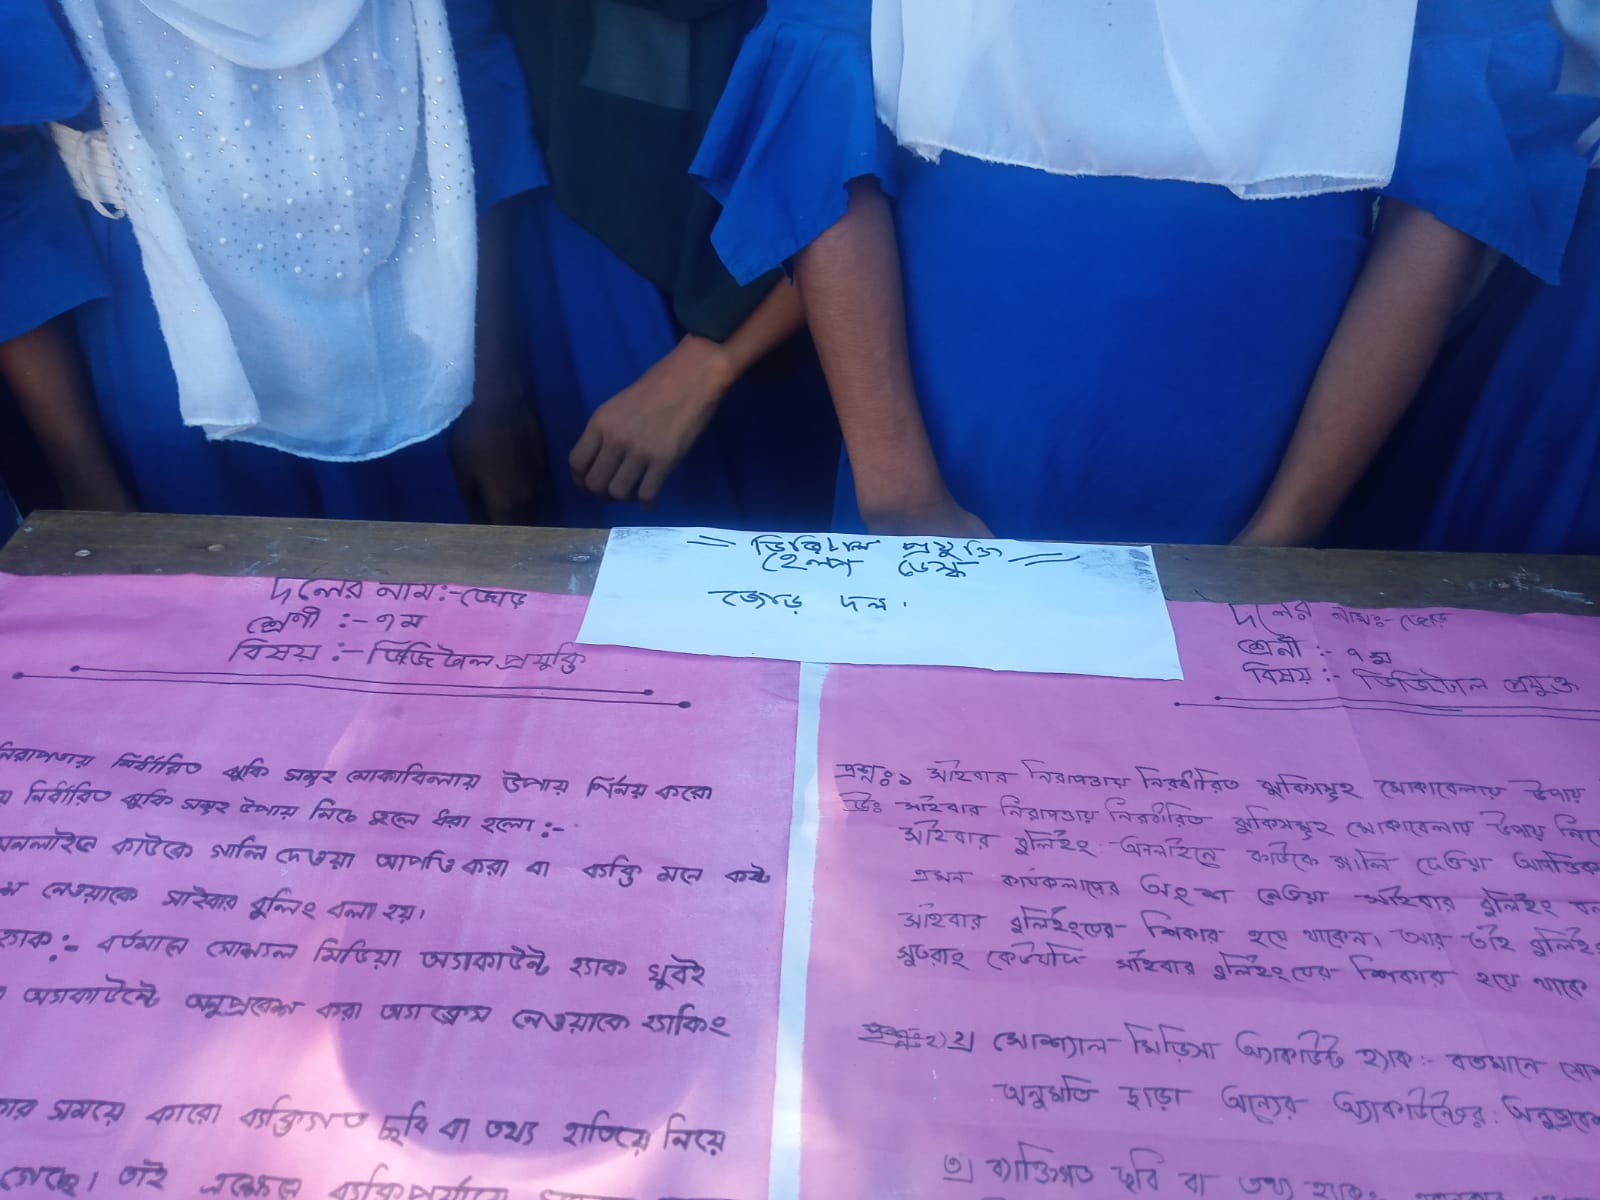 ডিজিটাল প্রযুক্তি
হেল্প ডেস্ক
জোড় দল।
দলের নাম:-জোড়
শ্রেণী :- ৭ম
বিষয় :- ডিজিটাল প্রযুক্তি
নিরাপত্তায় নির্ধারিত ঝুকি সমূহ মোকাবিলায় উপায় নির্নয় করো
নির্ধারিত ঝুকি সমূহ উপায় নিচে তুলে ধরা হলো :-
অনলাইনে কাউকে গালি দেওয়া আপত্তি করা বা ব্যক্তি মনে কষ্ট
নেওয়াকে সাইবার বুলিং বলা হয়।
হ্যাক:- বর্তমানে সোশ্যাল মিডিয়া অ্যাকাউন্ট হ্যাক খুবই
অ্যাকাউন্টে অনুপ্রবেশ করা অ্যাক্সেস নেওয়াকে হ্যাকিং
সময়ে কারো ব্যক্তিগত ছবি বা তথ্য হাতিয়ে নিয়ে
গেছে। তাই
দলের নামঃ- জোড়
শ্রেনী :- ৭ম
বিষয় :- ডিজিটাল প্রযুক্ত
প্রশ্নঃ১ সাইবার নিরাপত্তায় নিরর্ধারিত ঝুকিসমূহ মোকাবেলায় উপায়
উঃ সাইবার নিরাপত্তায় নিরর্ধারিত ঝুকিসমূহ মোকাবেলায় উপায় নিচে
সাইবার বুলিইং: অনলাইনে কাউকে গালি দেওয়া আপত্তিকর
এমন কার্যকলাপের অংশ নেওয়া সাইবার বুলিইং
সাইবার বুলিইংয়ের শিকার হয়ে থাকেন। আর তাই বুলিইং
সুতরাং কেউযদি সাইবার বুলিইংয়ের শিকার হয়ে থাকে
২) সোশ্যাল মিডিয়া অ্যাকাউন্ট হ্যাক :- বর্তমানে
অনুমতি ছাড়া অন্যের অ্যাকাউন্টের
৩) ব্যক্তিগত ছবি বা তথ্য হ্যাক: